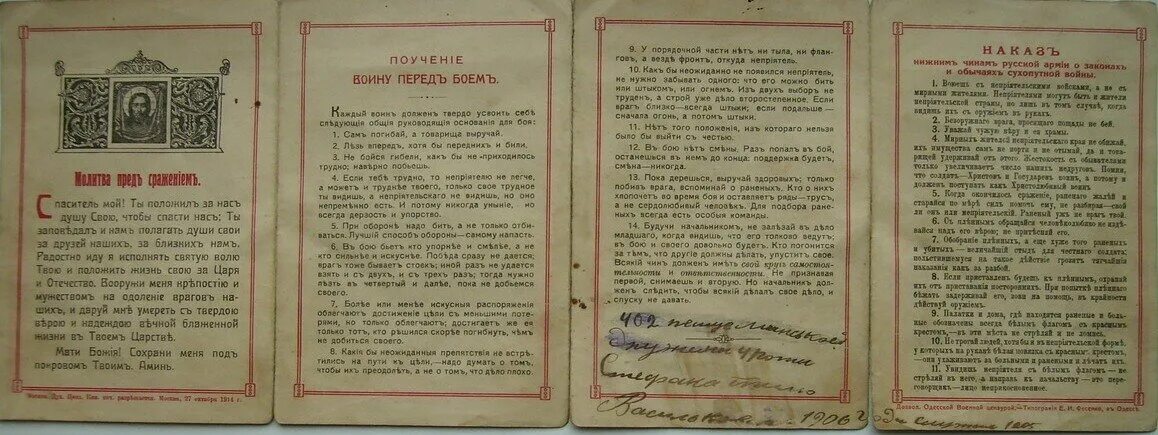 Молитва предъ сраженіемъ.
Спаситель мой! Ты положилъ за насъ
душу Свою, чтобы спасти насъ; Ты
заповѣдалъ и намъ полагать души свои
за друзей нашихъ, за близкихъ намъ.
Радостно иду я исполнять святую волю
Твою и положить жизнь свою за Царя
и Отечество. Вооружи меня крѣпостію и
мужествомъ на одолѣніе враговъ на-
шихъ, и даруй мнѣ умереть съ твердою
вѣрою и надеждою вѣчной блаженной
жизни въ Твоемъ Царствѣ.
Мати Божія! Сохрани меня подъ
покровомъ Твоимъ. Аминь.
Москва, 27 октября 1914 г.
ПОУЧЕНІЕ
ВОИНУ ПЕРЕДЪ БОЕМЪ.
Каждый воинъ долженъ твердо усвоить себѣ
слѣдующія общія руководящія основанія для боя:
1. Самъ погибай, а товарища выручай.
2. Лѣзь впередъ, хотя бы переднихъ и били.
3. Не бойся гибели, какъ бы не приходилось
трудно; навѣрно побьешь.
4. Если тебѣ трудно, то непріятелю не легче,
а можетъ и труднѣе твоего, только свое трудное
ты видишь, а непріятельскаго не видишь, но оно
непремѣнно есть. И потому никогда уныніе, но
всегда дерзость и упорство.
5. При оборонѣ надо бить, а не только отби-
ваться. Лучшій способъ обороны—самому напасть.
6. Въ бою бьетъ кто упорнѣе и смѣлѣе, а не
кто сильнѣе и искуснѣе. Побѣда сразу не дается;
врагъ тоже бываетъ стоекъ; иной разъ не удается
взять и съ двухъ, и съ трехъ разъ; тогда нужно
лѣзть въ четвертый и далѣе, пока не добьемся
своего.
7. Болѣе или менѣе искусныя распоряженія
облегчаютъ достиженіе цѣли съ меньшими поте-
рями, но только облегчаютъ; достигаетъ же ее
только тотъ, кто рѣшился скорѣе погибнуть, чѣмъ
не добиться своего.
8. Какія бы неожиданныя препятствія не встрѣ-
тились на пути къ цѣли,—надо думать о томъ,
чтобы ихъ преодолѣть, а не о томъ, что дѣло плохо.
9. У порядочной части нѣтъ ни тыла, ни флан-
говъ, а вездѣ фронтъ, откуда непріятель.
10. Какъ бы неожиданно не появился непріятель,
не нужно забывать одного: что его можно бить
или штыкомъ, или огнемъ. Изъ двухъ выборъ не
труденъ, а строй уже дѣло второстепенное. Если
врагъ близко—всегда штыки; если подальше—
сначала огонь, а потомъ штыки.
11. Нѣтъ того положенія, изъ котораго нельзя
было бы выйти съ честью.
12. Въ бою нѣтъ смѣны. Разъ попалъ въ бой,
останешься въ немъ до конца: поддержка будетъ,
смѣна—никогда.
13. Пока дерешься, выручай здоровыхъ; только
побивъ врага, вспоминай о раненыхъ. Кто о нихъ
хлопочетъ во время боя и оставляетъ ряды—трусъ,
а не сердобольный человѣкъ. Для подбора ране-
ныхъ всегда есть особыя команды.
14. Будучи начальникомъ, не залѣзай въ дѣло
младшаго, когда видишь, что его толково ведутъ;
въ бою и своего довольно будетъ. Кто погонится
за тѣмъ, что другіе должны дѣлать, упуститъ свое.
Всякій чинъ долженъ имѣть свой кругъ самостоя-
тельности и отвѣтственности. Не признавая
первой, снимаешь и вторую. Но начальникъ дол-
женъ слѣдить, чтобы всякій дѣлалъ свое дѣло, и
спуску не давать.
402
роты
Степана
1906 г
НАКАЗЪ
нижнимъ чинамъ русской арміи о законахъ
и обычаяхъ сухопутной войны.
1. Воюешь съ непріятельскими войсками, а не съ
мирными жителями. Непріятелями могутъ быть и жители
непріятельской страны, но лишь въ томъ случаѣ, когда
видишь ихъ съ оружіемъ въ рукахъ.
2. Безоружнаго врага, просящаго пощады не бей.
3. Уважай чужую вѣру и ея храмы.
4. Мирныхъ жителей непріятельскаго края не обижай,
ихъ имущества самъ не порти и не отымай, да и това-
рищей удерживай отъ этого. Жестокость съ обывателями
только увеличиваетъ число нашихъ недруговъ. Помни,
что солдатъ—Христовъ и Государевъ воинъ, а потому и
долженъ поступать какъ Христолюбивый воинъ
5. Когда окончилось сраженіе, раненаго жалѣй и
старайся по мѣрѣ силъ помочь ему, не разбирая—свой
ли онъ или непріятельскій. Раненый уже не врагъ твой.
6. Съ плѣннымъ обращайся человѣколюбиво не издѣ-
вайся надъ его вѣрою; не притѣсняй его.
7. Обобраніе плѣннаго, а еще хуже того раненыхъ
и убитыхъ — величайшій стыдъ для честнаго солдата;
польстившемуся на такое дѣйство грозятъ тягчайшія
наказанія какъ за разбой.
8. Если приставленъ будешь къ плѣннымъ, охраняй
ихъ отъ приставанія постороннихъ. При попыткѣ плѣннаго
бѣжать задержи его, зови на помощь, въ крайности
дѣйствуй оружіемъ.
9. Палатки и дома, гдѣ находятся раненые и боль-
ные обозначены всегда бѣлымъ флагомъ съ краснымъ
крестомъ,—въ эти мѣста не стрѣляй и не ломись.
10. Не трогай людей, хотя бы и въ непріятельской формѣ,
у которыхъ на рукавѣ бѣлая повязка съ краснымъ крестомъ,
—они ухаживаютъ за больными и ранеными и лѣчатъ ихъ.
11. Увидишь непріятеля съ бѣлымъ флагомъ — не
стрѣляй въ него, а направь къ начальству — это пере-
говорщикъ—лицо неприкосновенное.
Дозвол. Одесской Военной цензурой.—Типографія Е. И. Фесенко, въ Одессѣ.